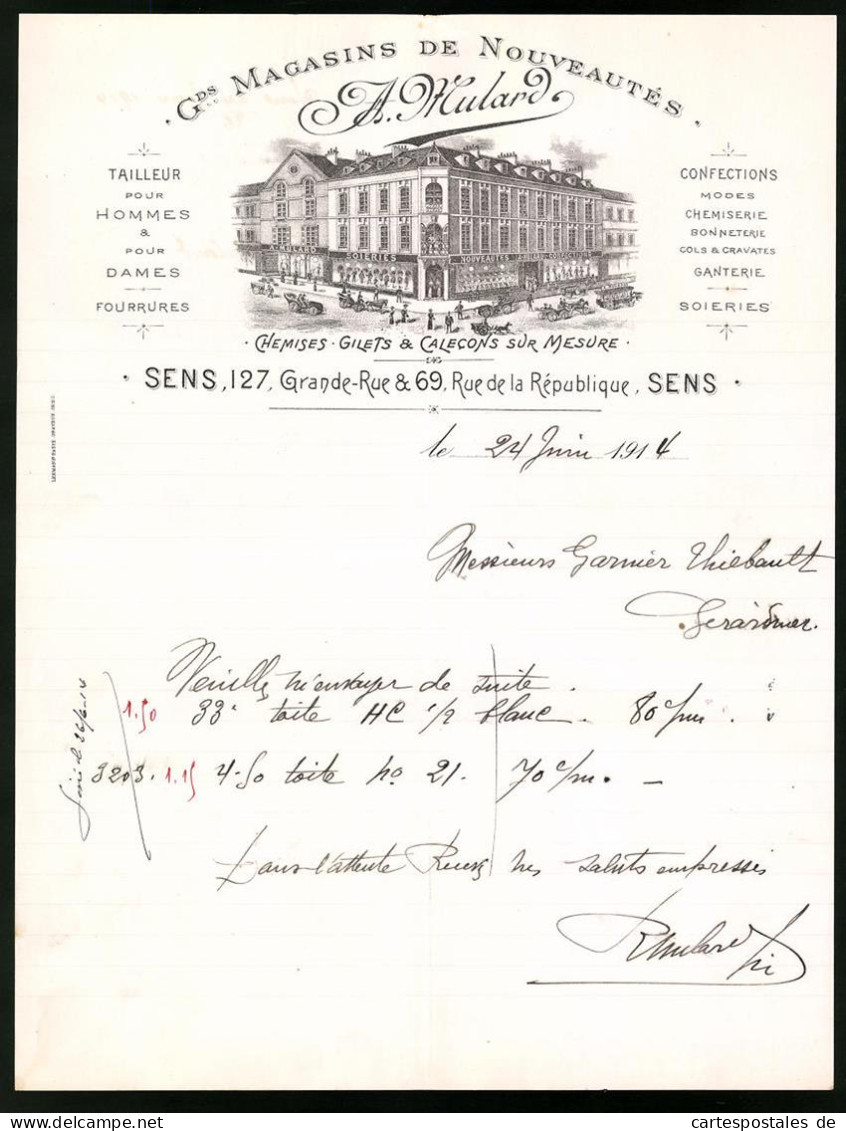 Gds Magasins de Nouveautés
A. Mulard
TAILLEUR
POUR
HOMMES
&
POUR
DAMES
FOURRURES
CONFECTIONS
MODES
CHEMISERIE
BONNETERIE
COLS & CRAVATES
GANTERIE
SOIERIES
A. MULARD
SOIERIES
NOUVEAUTÉS
· CHEMISES · GILETS & CALEÇONS SUR MESURE ·
· SENS, 127, Grande-Rue & 69, Rue de la République, SENS ·
le 24 Juin 1914
Messieurs Garnier Thiebault
Gerardmer.
Veuillez m'envoyer de suite.
1.50 33c toile HC 1/2 blanc. 80 c/m.
3203. 1.15 4.50 toile no 21. 70 c/m. —
Dans l'attente Recevez mes saluts empressés
Mulard
cartespostales de